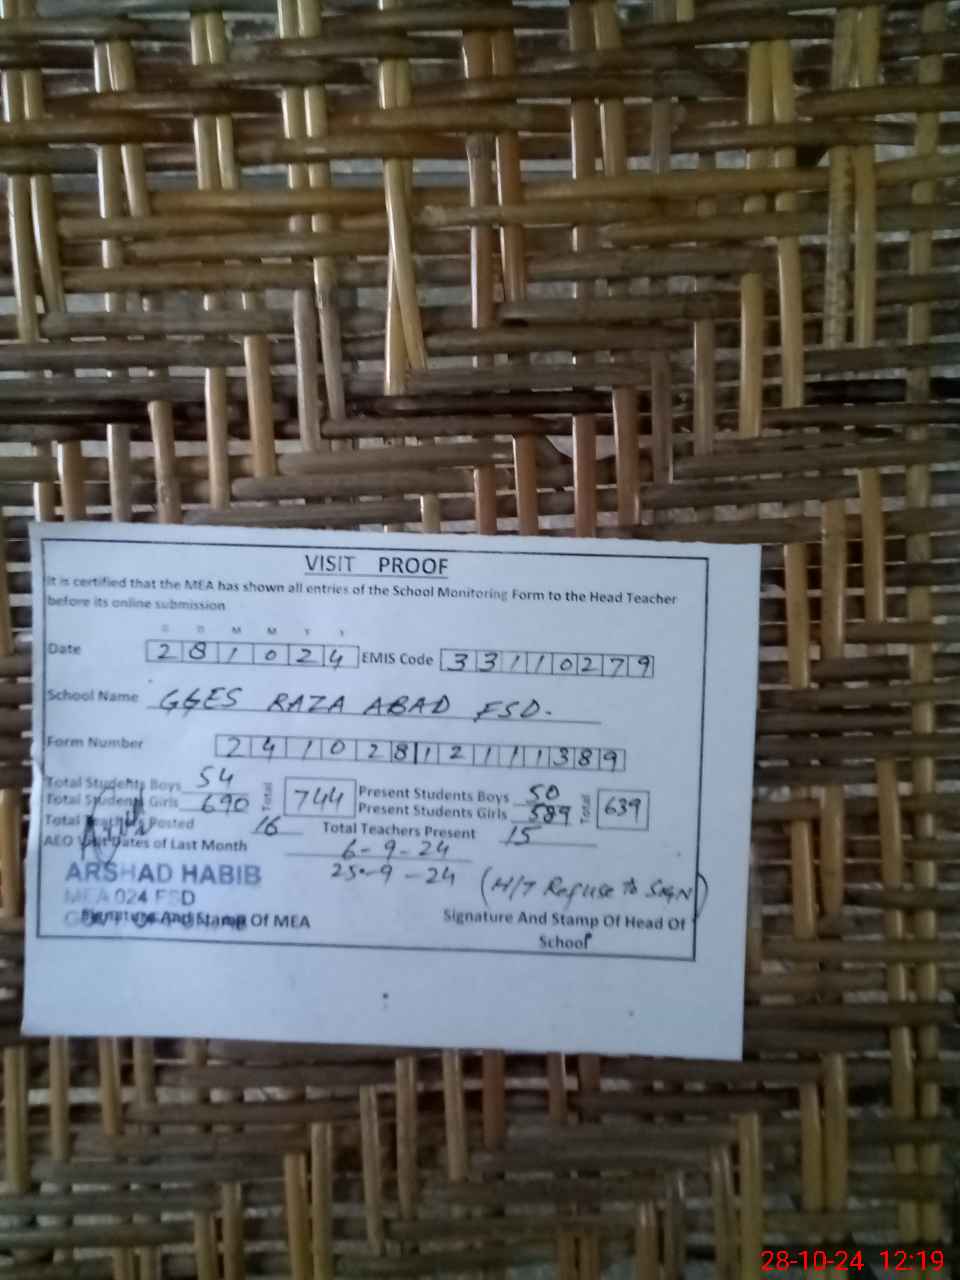 VISIT PROOF
It is certified that the MEA has shown all entries of the School Monitoring Form to the Head Teacher
before its online submission
D D M M Y Y
Date 281024 EMIS Code 33110279
School Name GGES RAZA ABAD FSD.
Form Number 24102812111389
Total Students Boys 54 Total 744 Present Students Boys 50 Total 639
Total Students Girls 690 Present Students Girls 589
Total Teachers Posted 16 Total Teachers Present 15
AEO Visit Dates of Last Month 6-9-24
25-9-24
ARSHAD HABIB
MEA 024 FSD
(H/T Refuse to SIGN)
Signature And Stamp Of MEA
Signature And Stamp Of Head Of
School
28-10-24 12:19